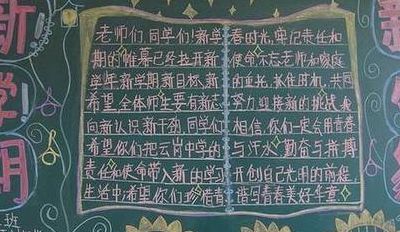 新学期
老师们,同学们!新学
期的帷幕已经拉开,新
学年,新学期,新目标,新
希望,全体师生要有新志
向,新认识,新干劲,同学们
希望你们把云岗中学的
责任和使命带入新的学习
生活中,希望你们珍惜青
春时光,牢记责任和
使命,不忘老师和家庭
的重托,抓住时机,共同
努力,迎接新的挑战,我
相信,你们一定会用青春
与汗水,勤奋与拼搏
开创自己光明的前程,
谱写青春美好华章!
新
班